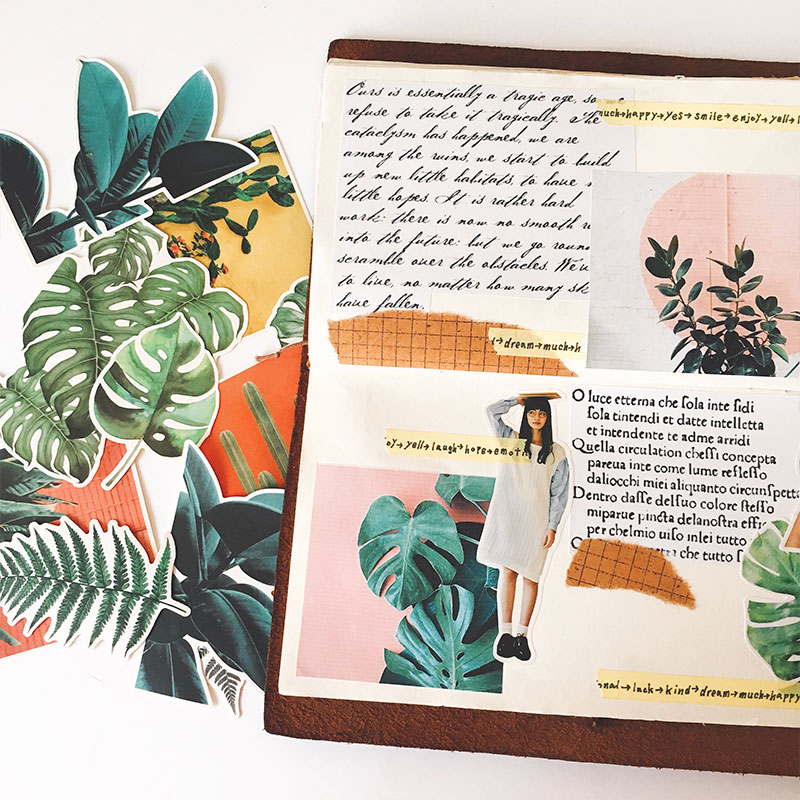 Ours is essentially a tragic age, so we
refuse to take it tragically. The
cataclysm has happened, we are
among the ruins, we start to build
up new little habitats, to have
little hopes. It is rather hard
work: there is now no smooth
into the future: but we go roun
scramble over the obstacles. We've
to live, no matter how many sk
have fallen.
much→happy→yes→smile→enjoy→yell→l
→dream→much→h
oy→yell→laugh→hope→emoti
O luce etterna che ſola inte ſidi
ſola tintendi et datte intelletta
et intendente te adme arridi
Quella circulation cheſſi concepta
pareua inte come lume refleſſo
daliocchi miei aliquanto circunſpetta
Dentro daſſe delſuo colore ſteſſo
miparue pincta delanoſtra effi
per chelmio uiſo inlei tutto
che tutto ſ
nal→luck→kind→dream→much→happy